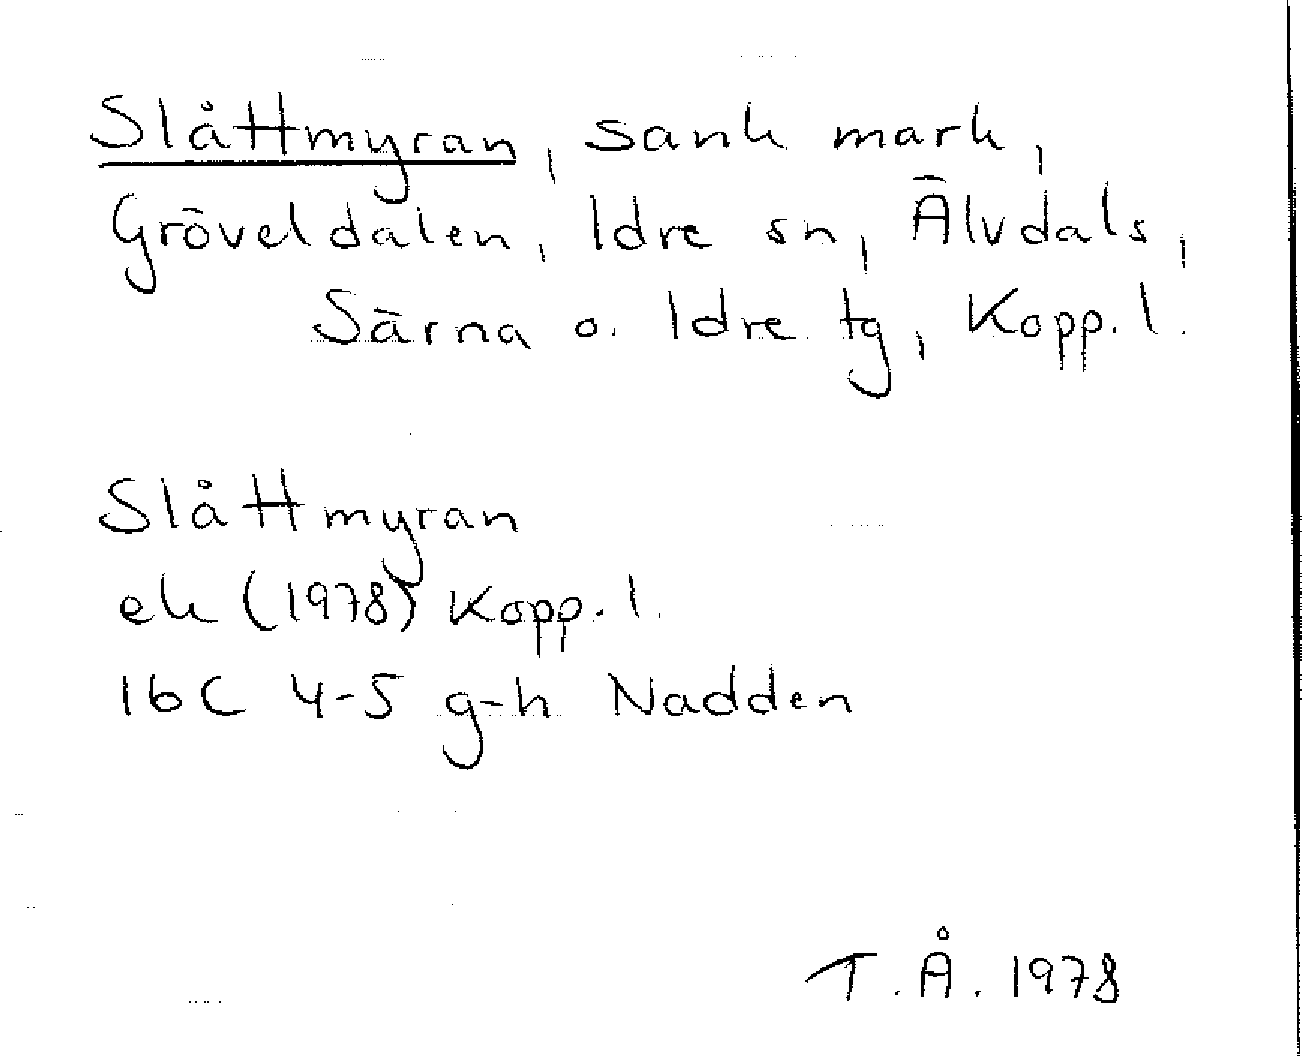 Slåttmyran, sank mark,
Gröveldalen, Idre sn, Älvdals,
Särna o. Idre tg, Kopp. l.
Slåttmyran
ek (1978) Kopp. l.
16C 4-5 g-h Nadden
T. Å. 1978